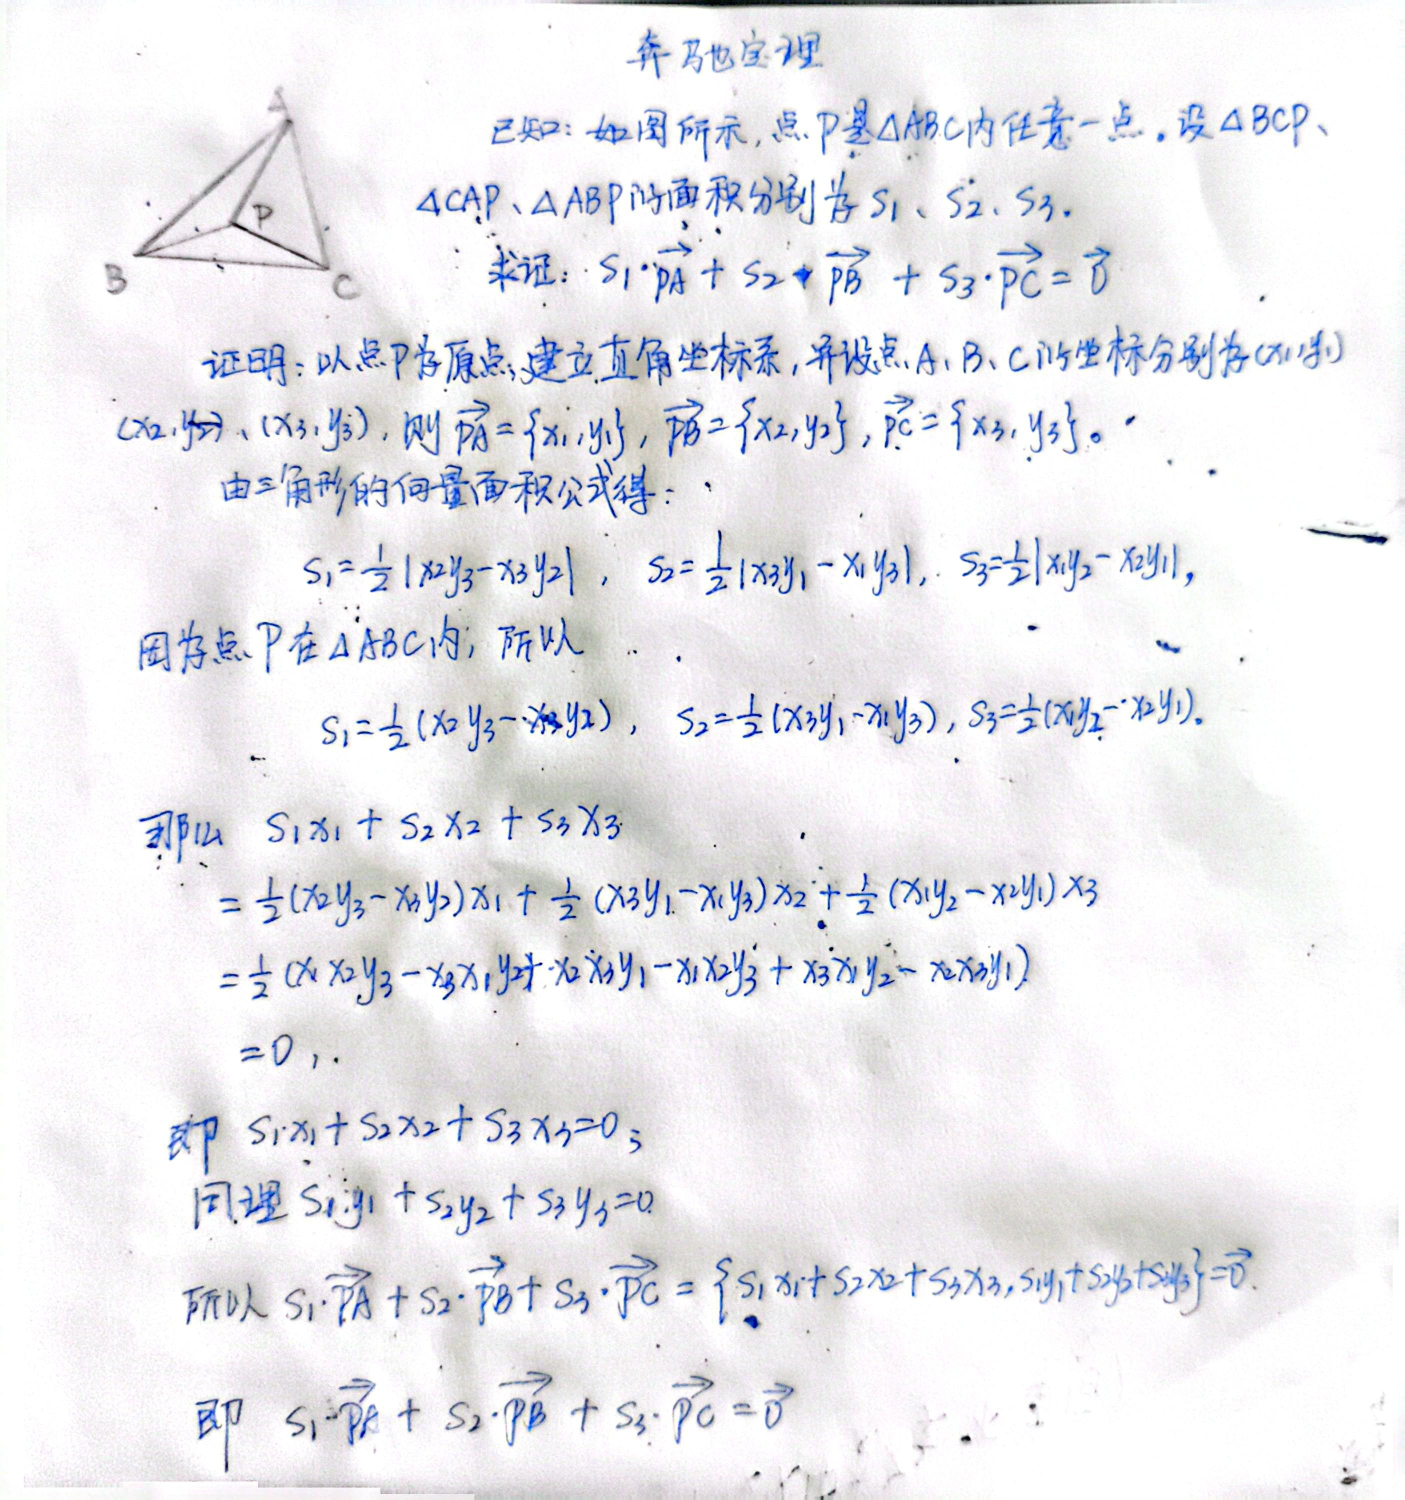 奔驰定理
A
B
P
C
已知：如图所示，点P是△ABC内任意一点。设△BCP、
△CAP、△ABP的面积分别为S1、S2、S3.
求证：S1·PA→ + S2·PB→ + S3·PC→ = 0→
证明：以点P为原点，建立直角坐标系，并设点A、B、C的坐标分别为(x1,y1)
(x2,y2)、(x3,y3)，则PA→={x1,y1}，PB→={x2,y2}，PC→={x3,y3}。
由三角形的向量面积公式得：
S1=½|x2y3-x3y2|，S2=½|x3y1-x1y3|，S3=½|x1y2-x2y1|，
因为点P在△ABC内，所以
S1=½(x2y3-x3y2)，S2=½(x3y1-x1y3)，S3=½(x1y2-x2y1)。
那么 S1x1+S2x2+S3x3
=½(x2y3-x3y2)x1+½(x3y1-x1y3)x2+½(x1y2-x2y1)x3
=½(x1x2y3-x3x1y2+x2x3y1-x1x2y3+x3x1y2-x2x3y1)
=0，
即 S1x1+S2x2+S3x3=0；
同理 S1y1+S2y2+S3y3=0
所以 S1·PA→+S2·PB→+S3·PC→={S1x1+S2x2+S3x3,S1y1+S2y2+S3y3}=0→.
即 S1·PA→ + S2·PB→ + S3·PC→ = 0→